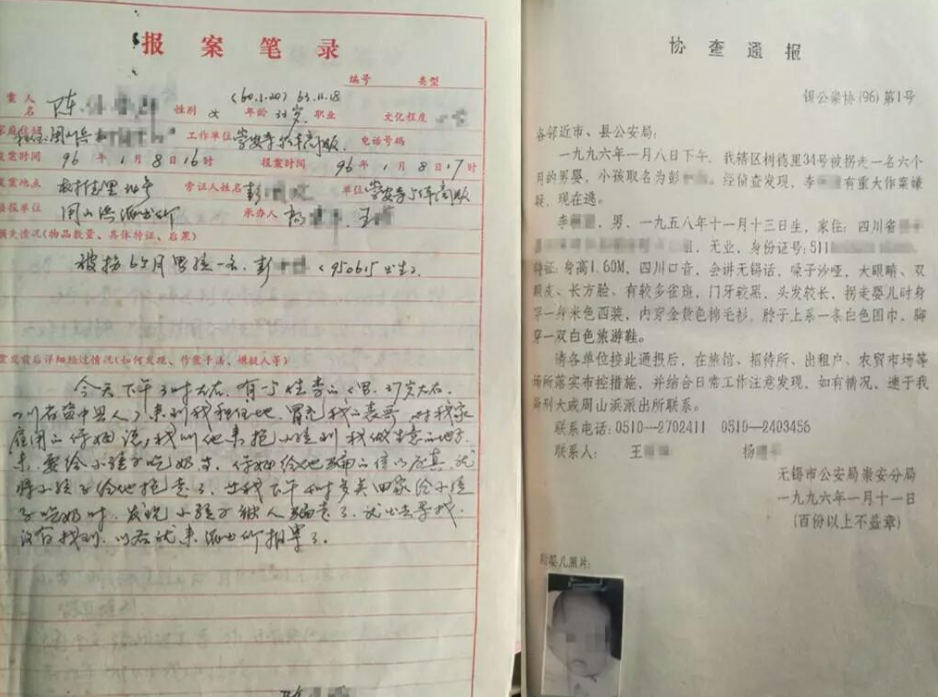 报案笔录
编号 类型
陈
(60.1.20) 63.11.18
性别 女 年龄 33岁 职业 文化程度
工作单位 电话号码
案时间 96年1月8日16时 报案时间 96年1月8日17时
案地点 旁证人姓名 彭 单位
报单位 承办人
失情况(物品数量、具体特征、后果)
被拐6个月男孩一名,彭 (950615出生)。
案发前后详细经过情况(如何发现、作案手法、嫌疑人等)
今天下午3时左右,有一个姓李的男,37岁左右,
(川省资中县人)来到我租住地,冒充我的表哥,对我家
保姆说,我叫他来抱小孩到我做生意的地方
来,要给小孩子吃奶,保姆给他骗了信以为真,就
将小孩子给他抱走了。
吃奶时,发现小孩子被人骗走了,就出去寻找,
没有找到,以后就来派出所报案了。
协查通报
锡公崇协(96)第1号
各邻近市、县公安局:
一九九六年一月八日下午,我辖区树德里34号被拐走一名六个
月的男婴,小孩取名为彭 。经侦查发现,李 有重大作案嫌
疑,现在逃。
李 ,男,一九五八年十一月十三日生,家住:四川省
组,无业,身份证号:511
特征:身高1.60M,四川口音,会讲无锡话,嗓子沙哑,大眼睛、双
眼皮、长方脸、有较多雀斑,门牙较黑,头发较长,拐走婴儿时身
穿一件米色西装,内穿金黄色棉毛衫,脖子上系一条白色围巾,脚
穿一双白色旅游鞋。
请各单位接此通报后,在旅馆、招待所、出租户、农贸市场等
场所落实布控措施,并结合日常工作注意发现,如有情况,速于我
局刑大或周山浜派出所联系。
联系电话:0510—2702411 0510—2403456
联系人: 王 杨
无锡市公安局崇安分局
一九九六年一月十一日
(百份以上不盖章)
附婴儿照片: